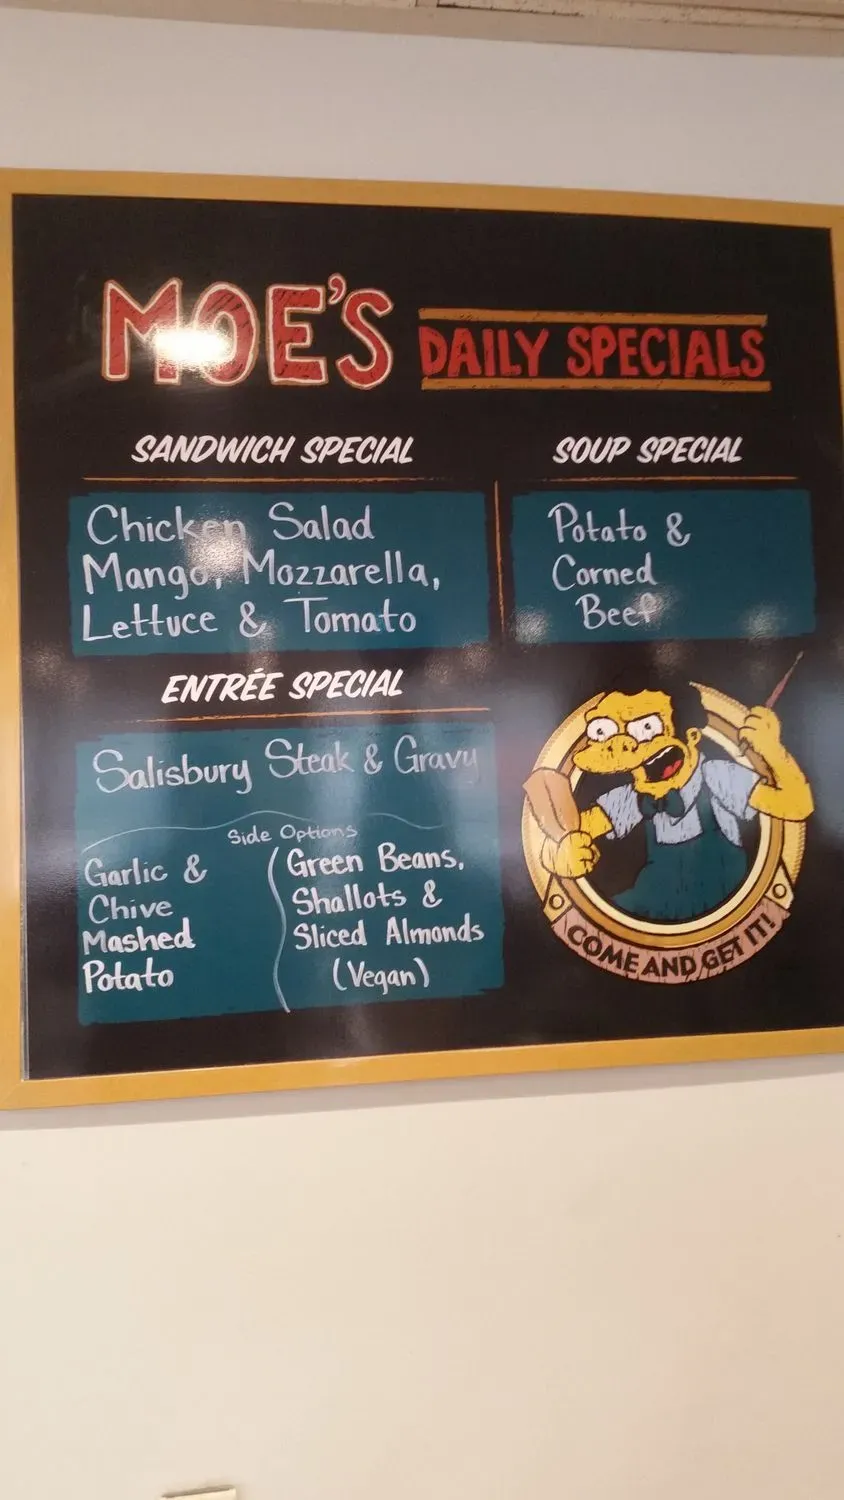 MOE'S DAILY SPECIALS
SANDWICH SPECIAL
Chicken Salad
Mango, Mozzarella,
Lettuce & Tomato
SOUP SPECIAL
Potato &
Corned
Beef
ENTRÉE SPECIAL
Salisbury Steak & Gravy
Side Options
Garlic &
Chive
Mashed
Potato
Green Beans,
Shallots &
Sliced Almonds
(Vegan)
COME AND GET IT!